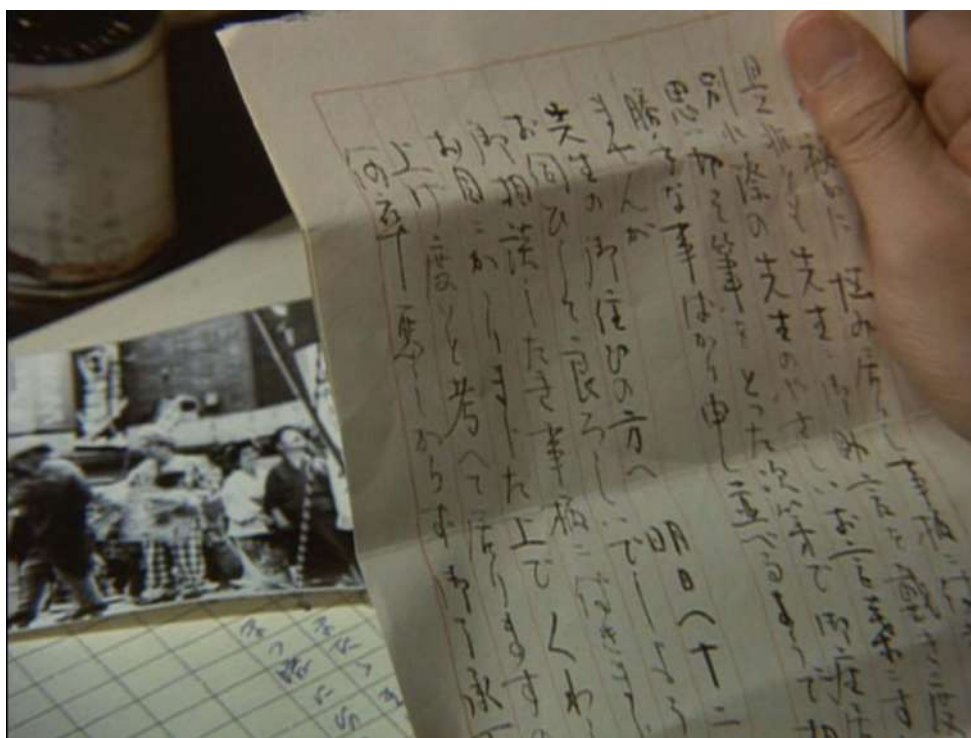 悩み居りし事柄に付
是非とも先生の御助言を戴き度
別れ際の先生のやさしいお言葉にす
思い切って筆をとった次第で御座居
勝手な事ばかり申し並べるようで相
ませんが 明日(十二
先生の御住ひの方へ
お伺ひして良ろしいでしょう
御相談したき事柄に付きまして
お目にかかりました上でくわ
上げ度いと考へて居りますの
何卒悪しからず御了承